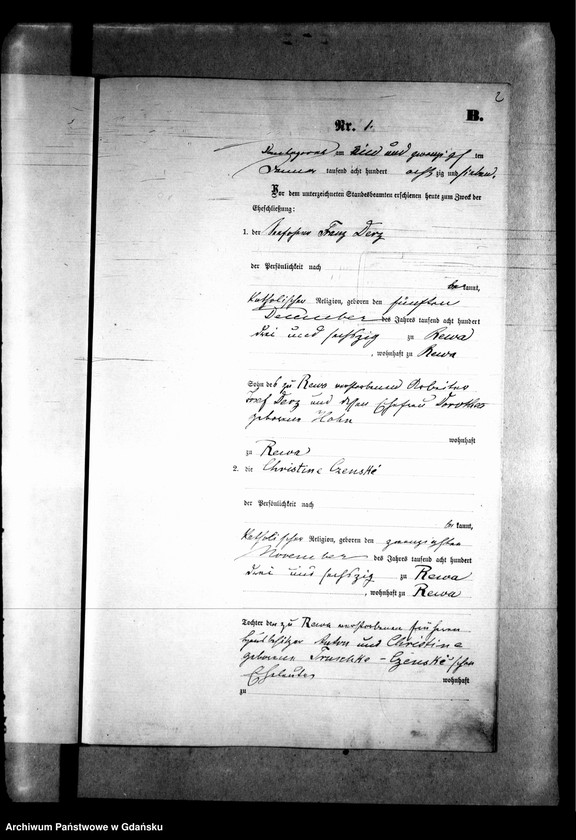 2
B.
Nr. 1.
am und zwanzigsten
Januar tausend acht hundert achtzig und sieben.
Vor dem unterzeichneten Standesbeamten erschienen heute zum Zweck der
Eheschließung:
1. der Franz Derz
der Persönlichkeit nach
be kannt,
katholischer Religion, geboren den fünften
December des Jahres tausend acht hundert
drei und sechszig zu Rewa
, wohnhaft zu Rewa
Sohn des zu Rewa verstorbenen Arbeiter
Derz und dessen Ehefrau Dorothea
geborene Hohn
wohnhaft
zu Rewa
2. die Christine Czenské
der Persönlichkeit nach
be kannt,
katholischer Religion, geboren den zwanzigsten
November des Jahres tausend acht hundert
drei und sechszig zu Rewa
, wohnhaft zu Rewa
Tochter der zu Rewa verstorbenen früheren
Anton und Christine
geborenen Truschke-Czenské'schen
Eheleute
wohnhaft
zu
Archiwum Państwowe w Gdańsku